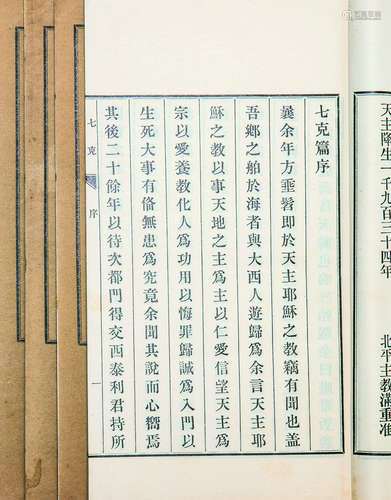 天主降生一千九百三十四年
北平主教滿重准
七克篇序
曩余年方垂髫即於天主耶穌之教竊有聞也蓋
吾鄉之舶於海者與大西人遊歸為余言天主耶
穌之教以事天地之主為主以仁愛信望天主為
宗以愛養教化人為功用以悔罪歸誠為入門以
生死大事有俻無患為究竟余聞其說而心嚮焉
其後二十餘年以待次都門得交西泰利君持所
七克
序
一